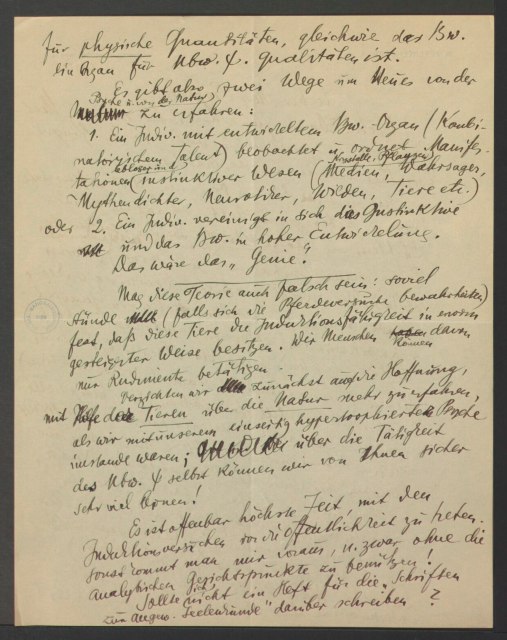 für physische Quantitäten, gleichwie das Bw.
ein Organ für Ubw. ψ. Qualitäten ist.
Es gibt also zwei Wege um Neues von der
Psyche u. von der Natur
zu erfahren:
1. Ein Indiv. mit entwickeltem Bw.-Organ (Kombi-
natorischem Talent) beobachtet u. ordnet Manifes-
lebloser und Kristalle, Pflanzen
tationen instinktiver Wesen (Medien, Wahrsager,
Mythendichter, Neurotiker, Wilden, Tiere etc.)
oder 2. Ein Indiv. vereinigt in sich das Instinktive
und das Bw. in hoher Entwickelung.
Das wäre das „Genie".
Mag diese Teorie auch falsch sein: soviel
stünde (falls sich die Pferdeversuche bewahrheiten)
fest, daß diese Tiere die Induktionsfähigkeit in enorm
gesteigerter Weise besitzen. Wir Menschen haben davon
können
nur Rudimente betätigen.
Verzichten wir zunächst auf die Hoffnung,
mit Hilfe der Tieren über die Natur mehr zu erfahren,
als wir mit unserem einseitig hypertrophierter Psyche
imstande waren; über die Tätigkeit
des Ubw. ψ selbst können wir von Ihnen sicher
sehr viel lernen!
Es ist offenbar höchste Zeit, mit den
Induktionsversuchen vor die Öffentlichkeit zu treten.
Sonst kommt man mir voraus, u. zwar ohne die
analytischen Gesichtspunkte zu benützen!
Sollte ich nicht ein Heft für die „Schriften
zur angew. Seelenkunde" darüber schreiben?